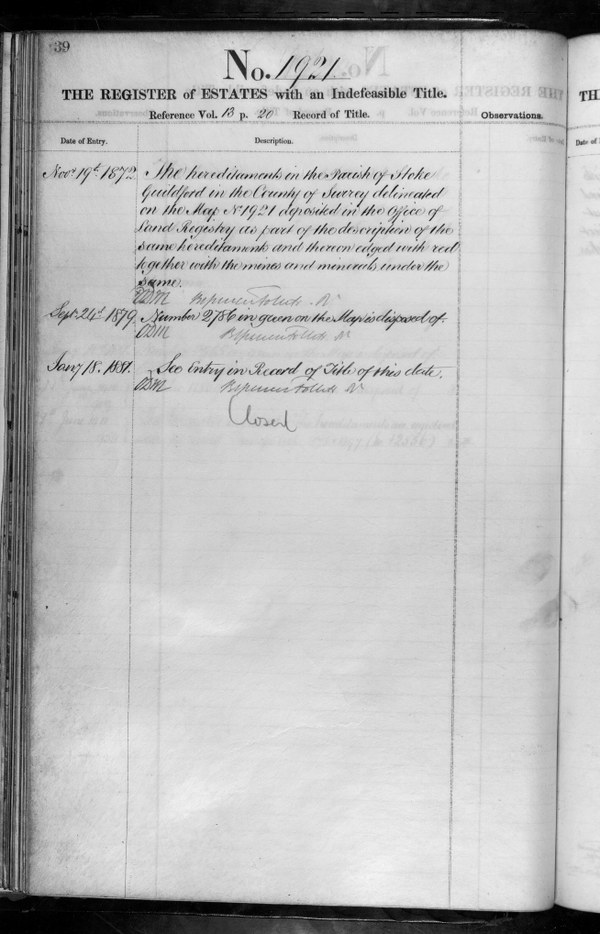 39
No. 1921.
THE REGISTER of ESTATES with an Indefeasible Title.
Reference Vol. 13 p. 20 Record of Title.
Observations.
Date of Entry.
Description.
Novr 19th 1872. The hereditaments in the Parish of Stoke
Guildford in the County of Surrey delineated
on the Map No 1921 deposited in the Office of
Land Registry as part of the description of the
same hereditaments and thereon edged with red
together with the mines and minerals under the
same.
Brent Spencer Follett Rr
Septr 24th 1879. Number 2786 in green on the Map is disposed of.
Brent Spencer Follett Rr
Jany 18. 1881. See Entry in Record of Title of this date.
Brent Spencer Follett Rr
Closed
TH
Date of